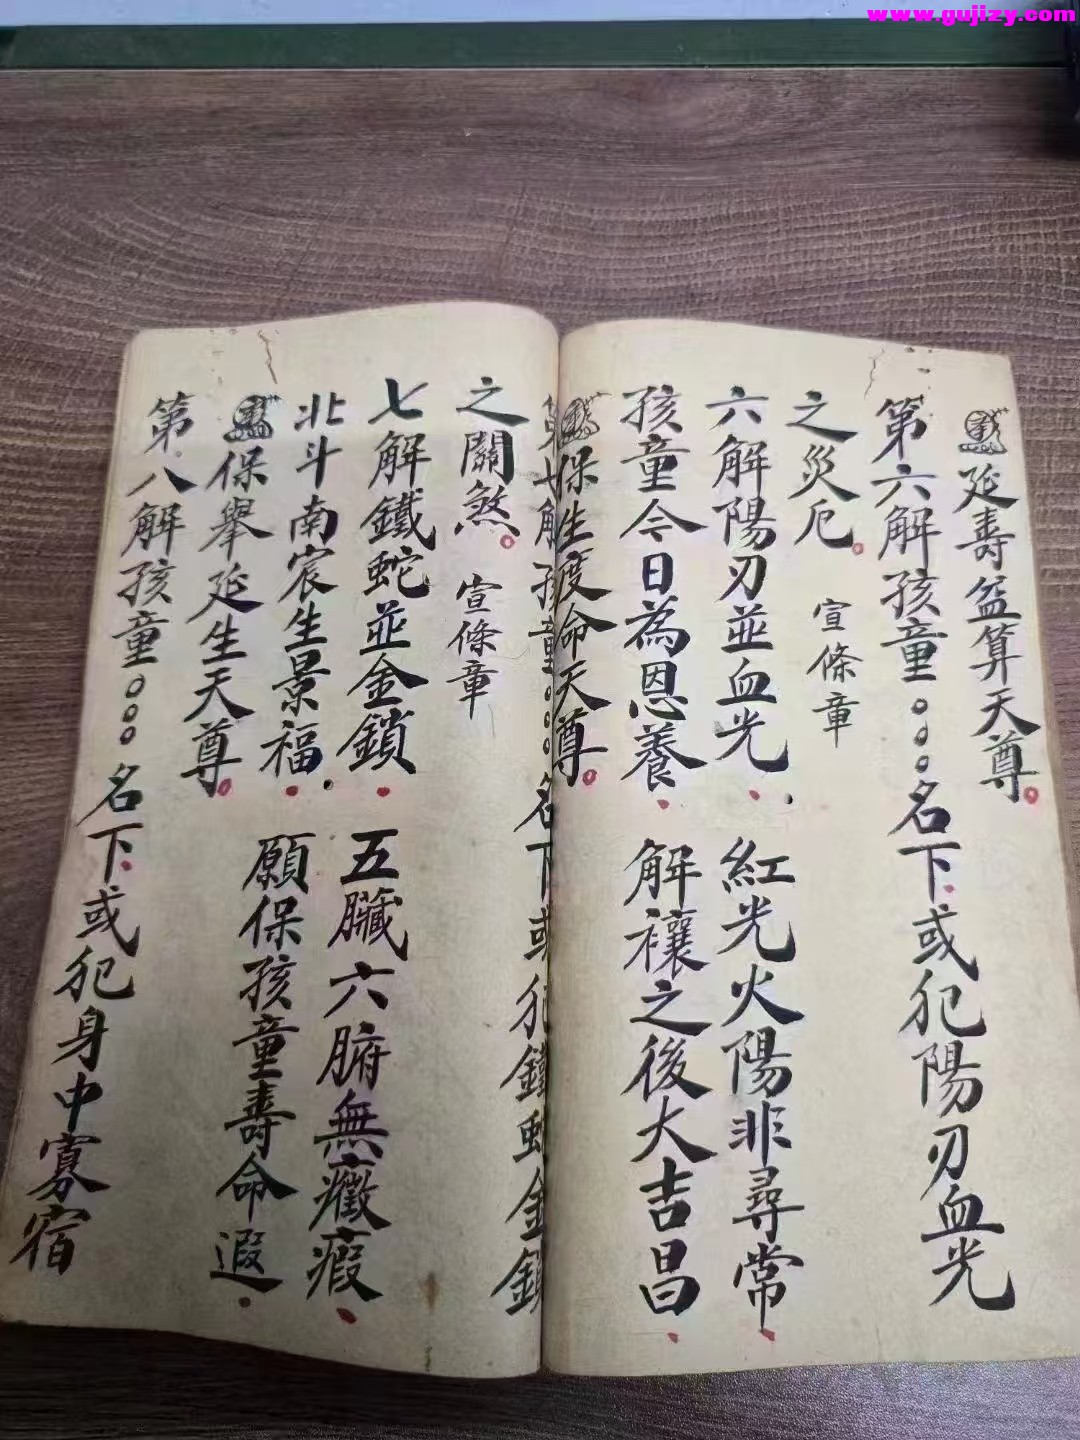 www.gujizy.com
延壽益算天尊
第六解孩童。。。名下或犯陽刃血光
之災厄。 宣條章
六解陽刃並血光 紅光火陽非尋常
孩童今日為恩養 解禳之後大吉昌
保生度命天尊
第七解孩童。。。名下或犯鐵蛇金鎖
之關煞。 宣條章
七解鐵蛇並金鎖 五臟六腑無癥瘕
北斗南宸生景福 願保孩童壽命遐
保舉延生天尊
第八解孩童。。。名下或犯身中寡宿